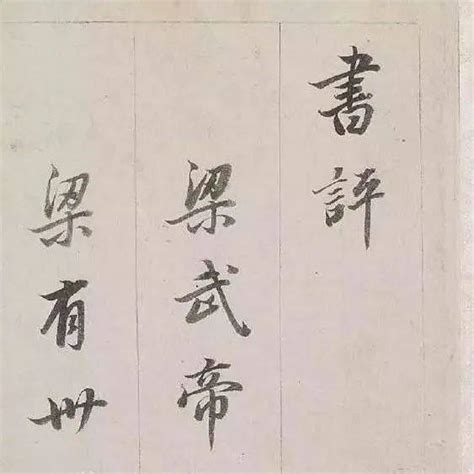 書評
梁武帝
梁有卅